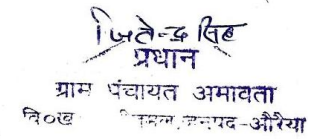 जितेन्द्र सिंह
प्रधान
ग्राम पंचायत अमावता
वि०ख जनपद-औरैया